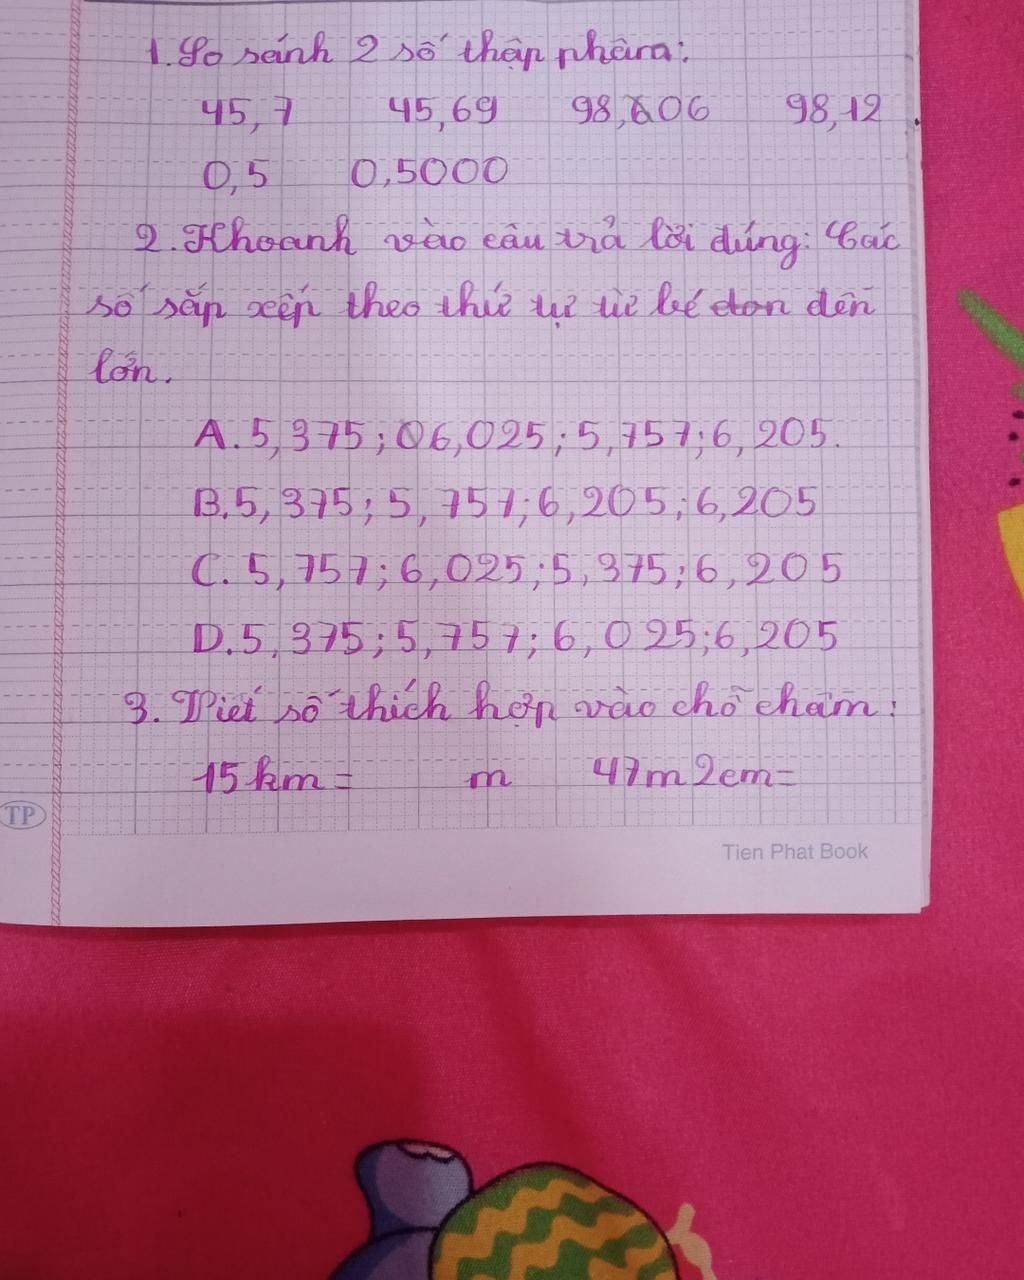 1. So sánh 2 số thập phân:
45,7 45,69 98,606 98,12
0,5 0,5000
2. Khoanh vào câu trả lời đúng: Các
số sắp xếp theo thứ tự từ bé đến
lớn.
A. 5,375; 06,025; 5,757; 6,205.
B. 5,375; 5,757; 6,205; 6,205
C. 5,757; 6,025; 5,375; 6,205
D. 5,375; 5,757; 6,025; 6,205
3. Viết số thích hợp vào chỗ chấm:
15km = m 47m 2cm =
TP
Tien Phat Book